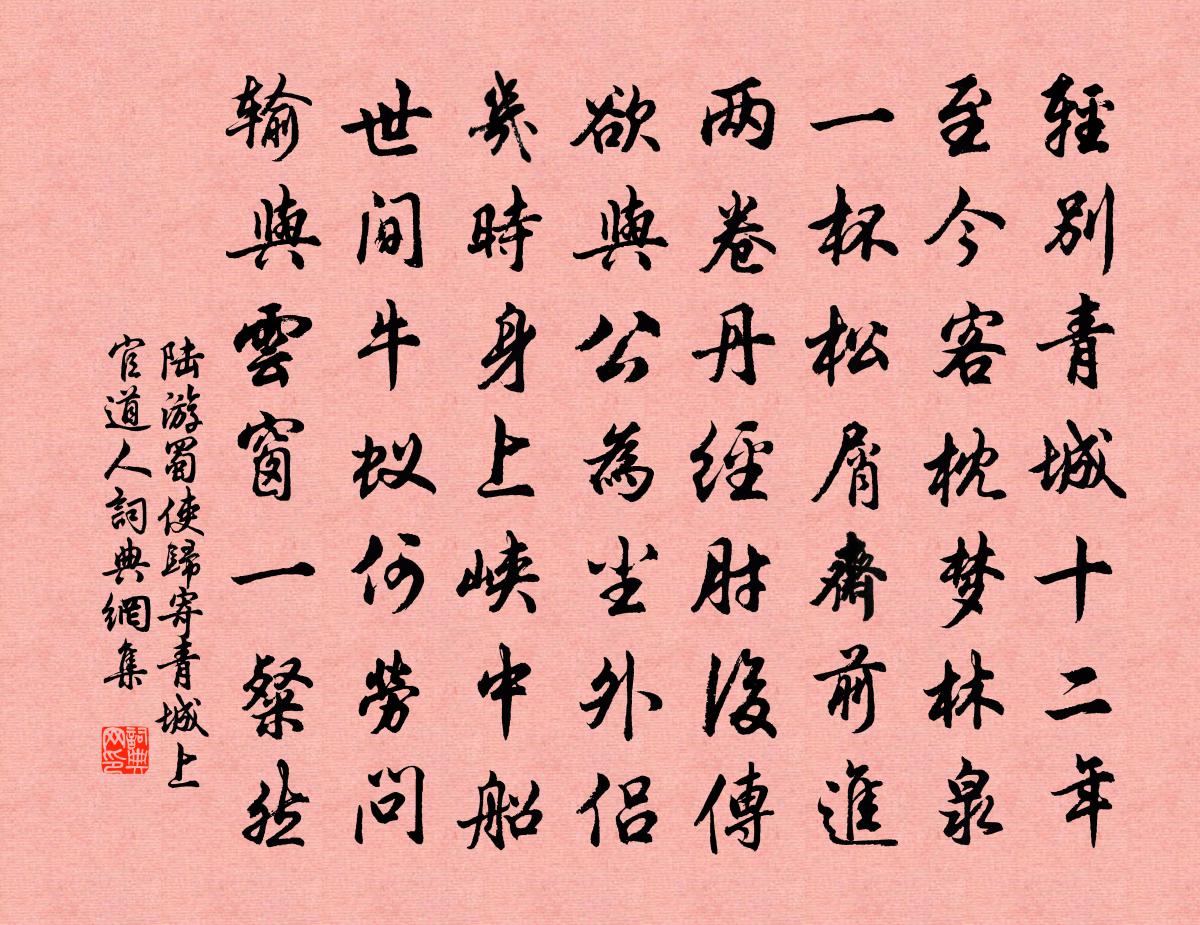 輕別青城十二年
至今客枕梦林泉
一杯松屑齋前進
两卷丹經肘後傳
欲與公為尘外侣
幾時身上峡中船
世间牛蚁何勞问
輸與雲窗一粲然
陆游蜀使歸寄青城上
官道人詞典網集
詞典
网印